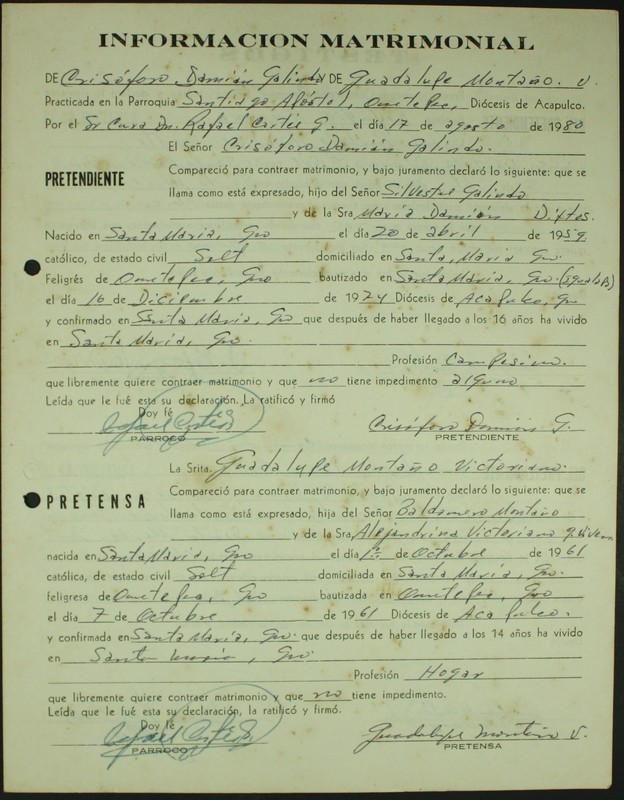 INFORMACION MATRIMONIAL
DE Crisóforo Damián Galindo Y DE Guadalupe Montaño. V.
Practicada en la Parroquia Santiago Apóstol, Ometepec, Diócesis de Acapulco.
Por el Sr Cura Dn. Rafael Cortés G. el día 17 de agosto de 1980
El Señor Crisóforo Damián Galindo.
PRETENDIENTE
Compareció para contraer matrimonio, y bajo juramento declaró lo siguiente: que se
llama como está expresado, hijo del Señor Silvestre Galindo
y de la Sra María Damián
Nacido en Santa María, Gro el día 20 de abril de 1959
católico, de estado civil Solt domiciliado en Santa María Gro.
Feligrés de Ometepec, Gro bautizado en Santa María, Gro. (Igualapa)
el día 16 de Diciembre de 1974 Diócesis de Acapulco, Gro
y confirmado en Santa María, Gro que después de haber llegado a los 16 años ha vivido
en Santa María, Gro.
Profesión Campesino.
que libremente quiere contraer matrimonio y que no tiene impedimento alguno
Leída que le fué esta su declaración. La ratificó y firmó
Doy fé
Crisóforo Damián G.
PARROCO
PRETENDIENTE
La Srita. Guadalupe Montaño Victoriano.
PRETENSA
Compareció para contraer matrimonio, y bajo juramento declaró lo siguiente: que se
llama como está expresado, hija del Señor Baldomero Montaño
y de la Sra. Alejandrina Victoriano q. viven
nacida en Santa María, Gro el día 1o. de Octubre de 1961
católica, de estado civil Solt domiciliada en Santa María, Gro.
feligresa de Ometepec, Gro bautizada en Ometepec, Gro
el día 7 de Octubre de 1961 Diócesis de Acapulco.
y confirmada en Santa María, Gro. que después de haber llegado a los 14 años ha vivido
en Santa María, Gro.
Profesión Hogar
que libremente quiere contraer matrimonio y que no tiene impedimento.
Leída que le fué su declaración, la ratificó y firmó.
Doy fé
Guadalupe Montaño V.
PARROCO
PRETENSA